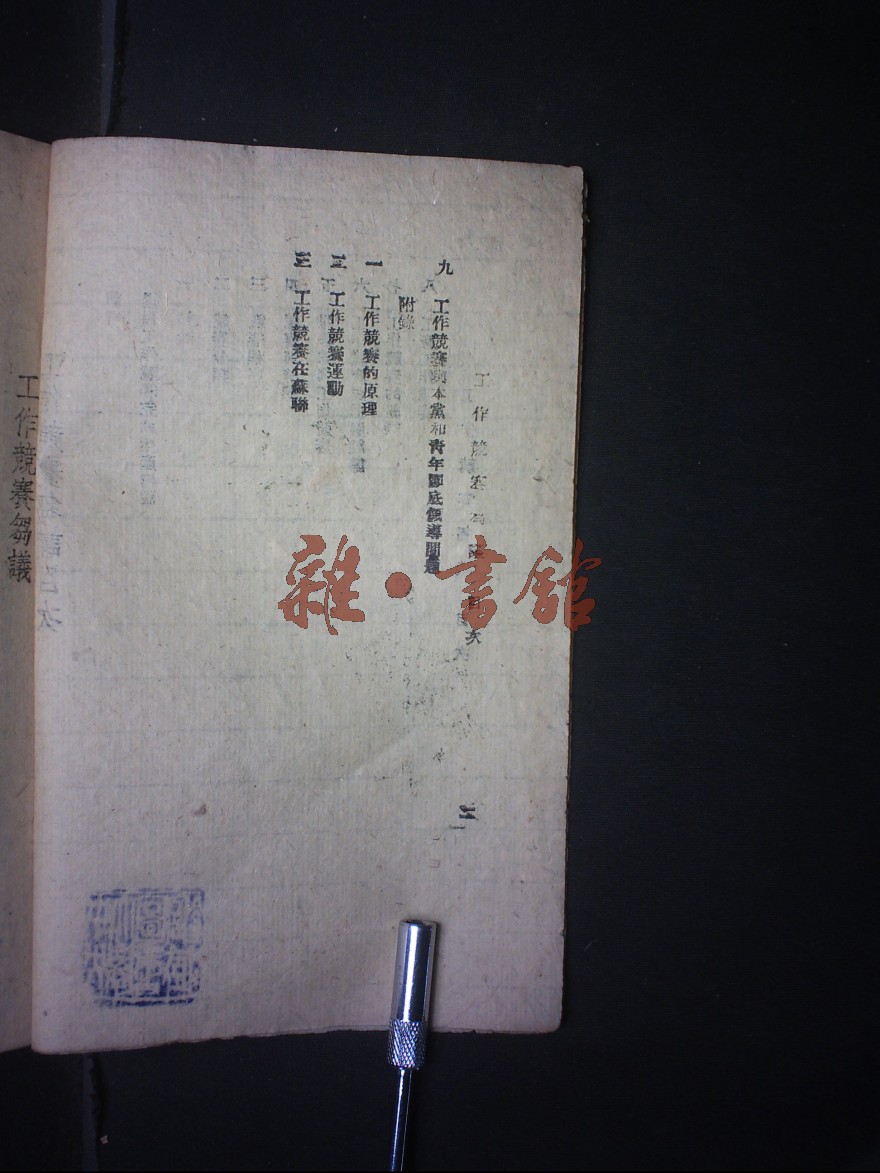 工作競賽芻議 目次
二
九 工作競賽與本黨和青年團底領導問題
附錄
一 工作競賽的原理
二 工作競賽運動
三 工作競賽在蘇聯
工作競賽芻議
雜·書館